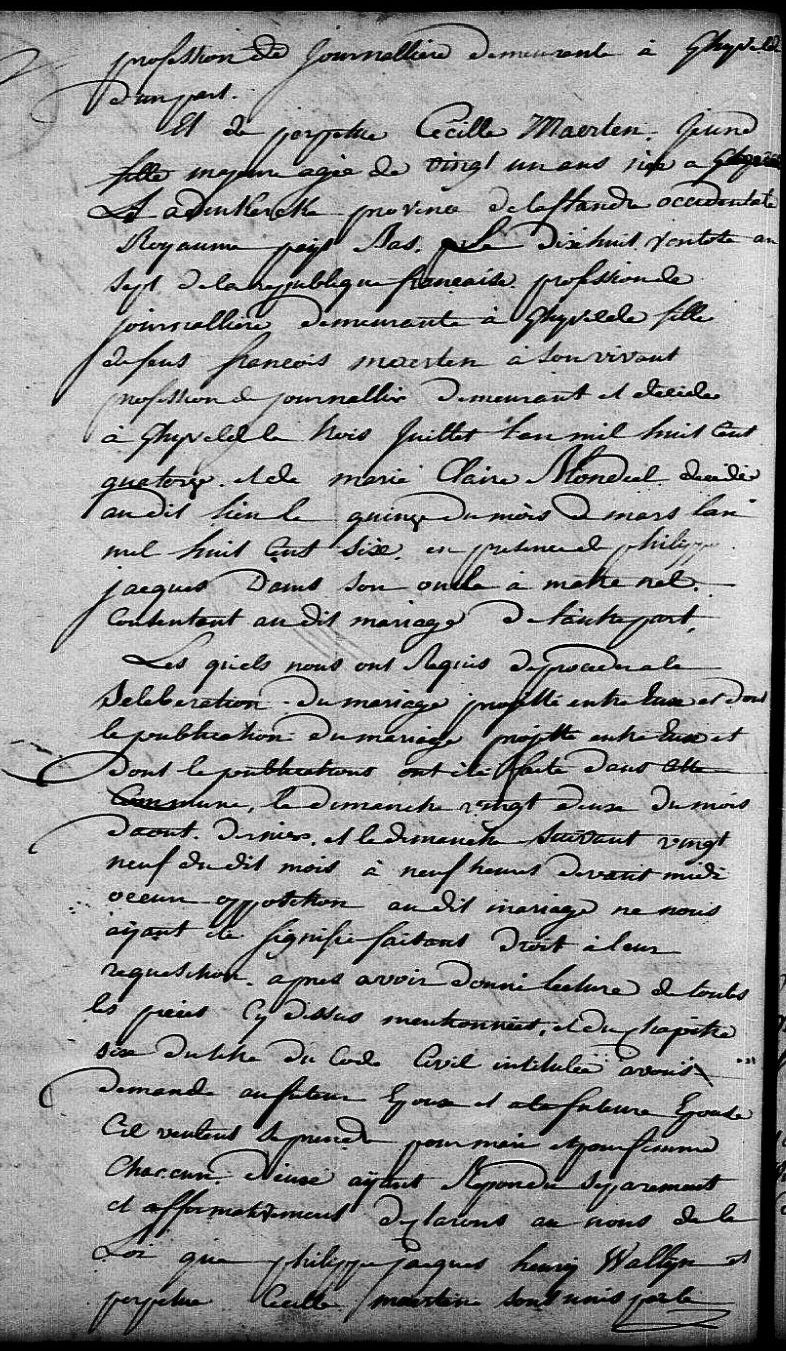 profession de Journalliere demeurante à Ghyvelde
d'un part.
Et de perpetue Cecille Maerten. Jeune
fille majeure agée de vingt un ans née a
Le adinkerke province de la flandre occidentale
Royaume pays Bas. Le dixhuit ventote an
sept de la republique francaise. profession de
journalliere demeurante à Ghyvelde fille
de feus francois maerten à son vivant
profession de journallier demeurant et decede
à Ghyvelde le trois Juillet l'an mil huit cent
quatorze. et de marie Claire Mondiel decedé
au dit lieu le quinze du mois de mars lan
mil huit cent six. en presence de philippe
jacques Dams son oncle à maternel.
Contentant au dit mariage de l'autre part.
Les quels nous ont Requis de proceder a la
Seleberation du mariage projetté entre Euxe et dont
le publication du mariage projette entre Euxe et
dont le publications ont été faite dans cette
Commune, le dimanche vingt deux du mois
daout dernier, et le dimanche suivant vingt
neuf du dit mois à neuf heures devant midi
occun oppotition au dit mariage ne nous
aÿant ete signifié faisant droit à leur
requesition. apres avoir donné lecture de toutes
les pieces Cy dessus mentionnées, et du chapitre
six du titre du Code Civil intitulée avons
demande au futeur Epoux et a la future Epouse
Cil veulent se prendre pour mari et pour femme
Chaccun d'euxe aÿant Repondu separement
et afformativement declarons au nons de la
Loi que philippe jacques henry Wallyn et
perpetue Cecille maerten sont unis par le